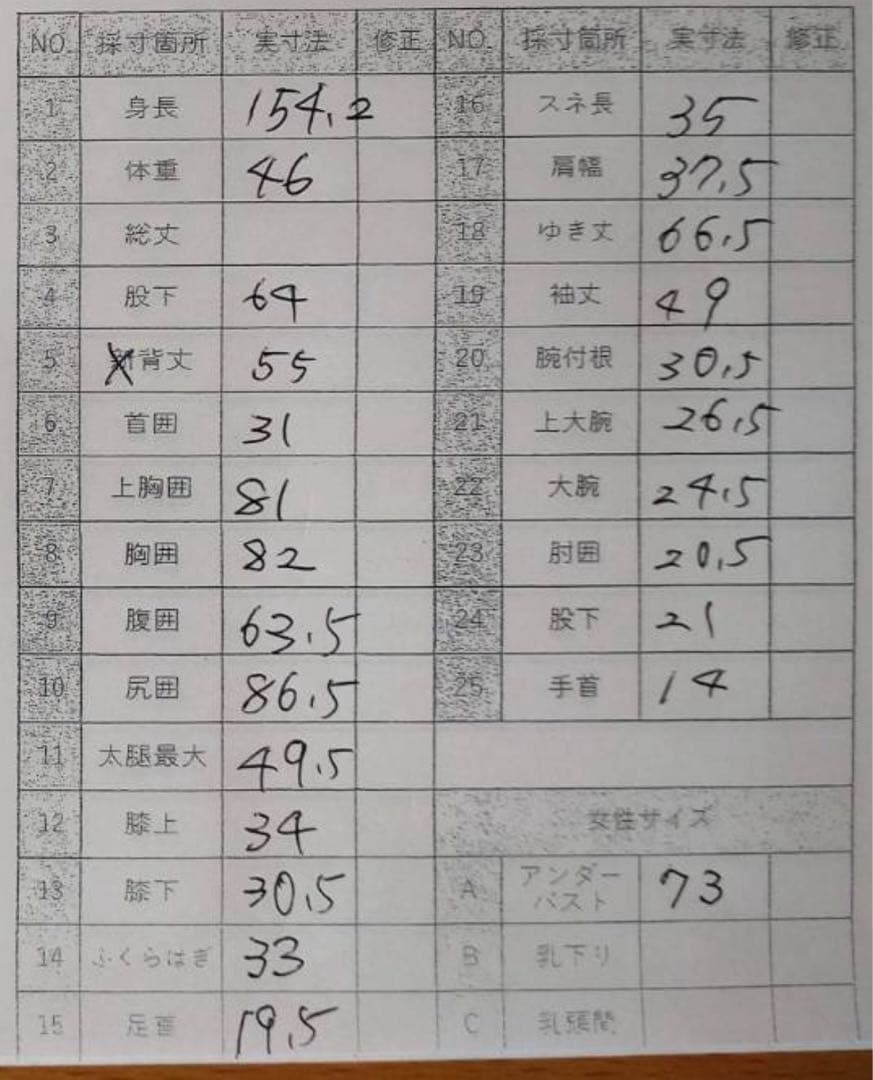 NO. 採寸箇所 実寸法 修正 NO. 採寸箇所 実寸法 修正
1 身長 154.2 16 スネ長 35
2 体重 46 17 肩幅 37.5
3 総丈 18 ゆき丈 66.5
4 股下 64 19 袖丈 49
5 背丈 55 20 腕付根 30.5
6 首囲 31 21 上大腕 26.5
7 上胸囲 81 22 大腕 24.5
8 胸囲 82 23 肘囲 20.5
9 腹囲 63.5 24 股下 21
10 尻囲 86.5 25 手首 14
11 太腿最大 49.5
12 膝上 34 女性サイズ
13 膝下 30.5 A アンダーバスト 73
14 ふくらはぎ 33 B 乳下り
15 足首 19.5 C 乳張間